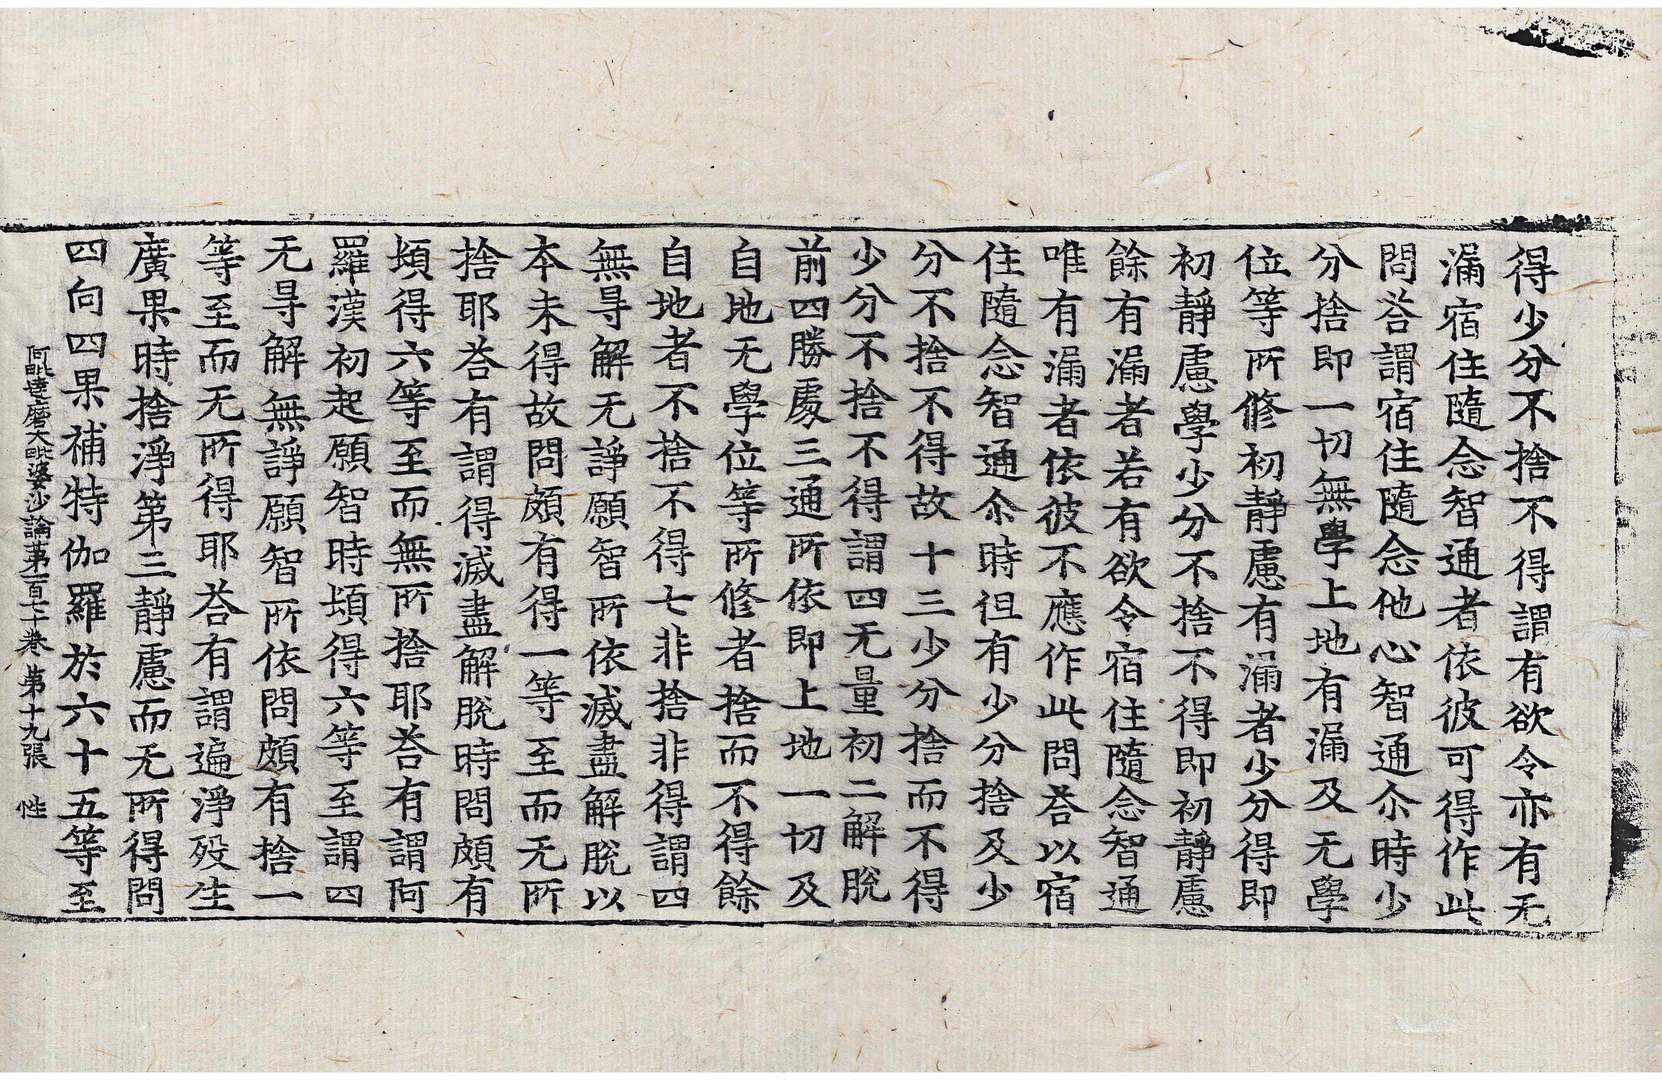 得少分不捨不得謂有欲令亦有无
漏宿住隨念智通者依彼可得作此
問荅謂宿住隨念他心智通尒時少
分捨即一切無學上地有漏及无學
位等所修初靜慮有漏者少分得即
初靜慮學少分不捨不得即初靜慮
餘有漏者若有欲令宿住隨念智通
唯有漏者依彼不應作此問荅以宿
住隨念智通尒時但有少分捨及少
分不捨不得故十三少分捨而不得
少分不捨不得謂四无量初二解脫
前四勝處三通所依即上地一切及
自地无學位等所修者捨而不得餘
自地者不捨不得七非捨非得謂四
無㝵解无諍願智所依滅盡解脫以
本未得故問頗有得一等至而无所
捨耶荅有謂得滅盡解脫時問頗有
頓得六等至而無所捨耶荅有謂阿
羅漢初起願智時頓得六等至謂四
无㝵解無諍願智所依問頗有捨一
等至而无所得耶荅有謂遍淨歿生
廣果時捨淨第三靜慮而无所得問
四向四果補特伽羅於六十五等至
阿毗達磨大毗婆沙論第一百七十卷 第十九張 性